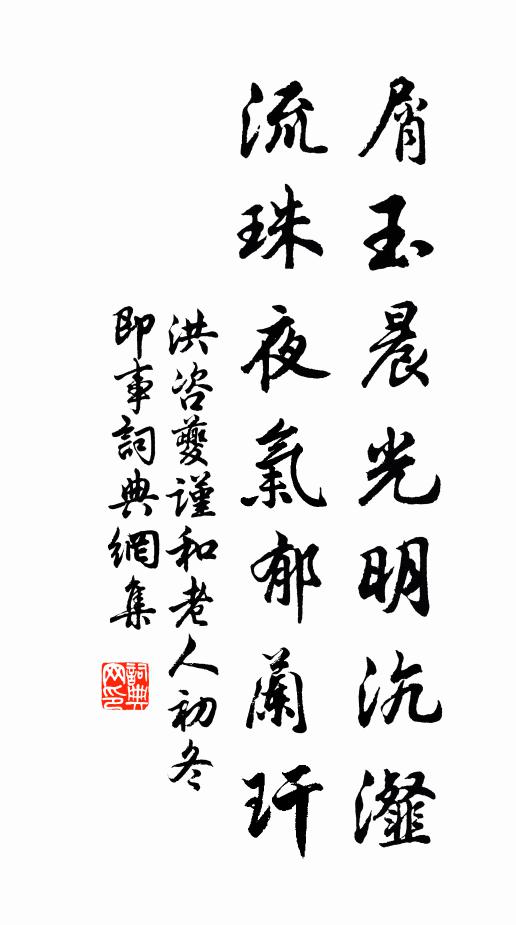 屑玉晨光明沆瀣
流珠夜氣郁蘭玕
洪咨夔謹和老人初冬
即事詞典網集
詞典網印